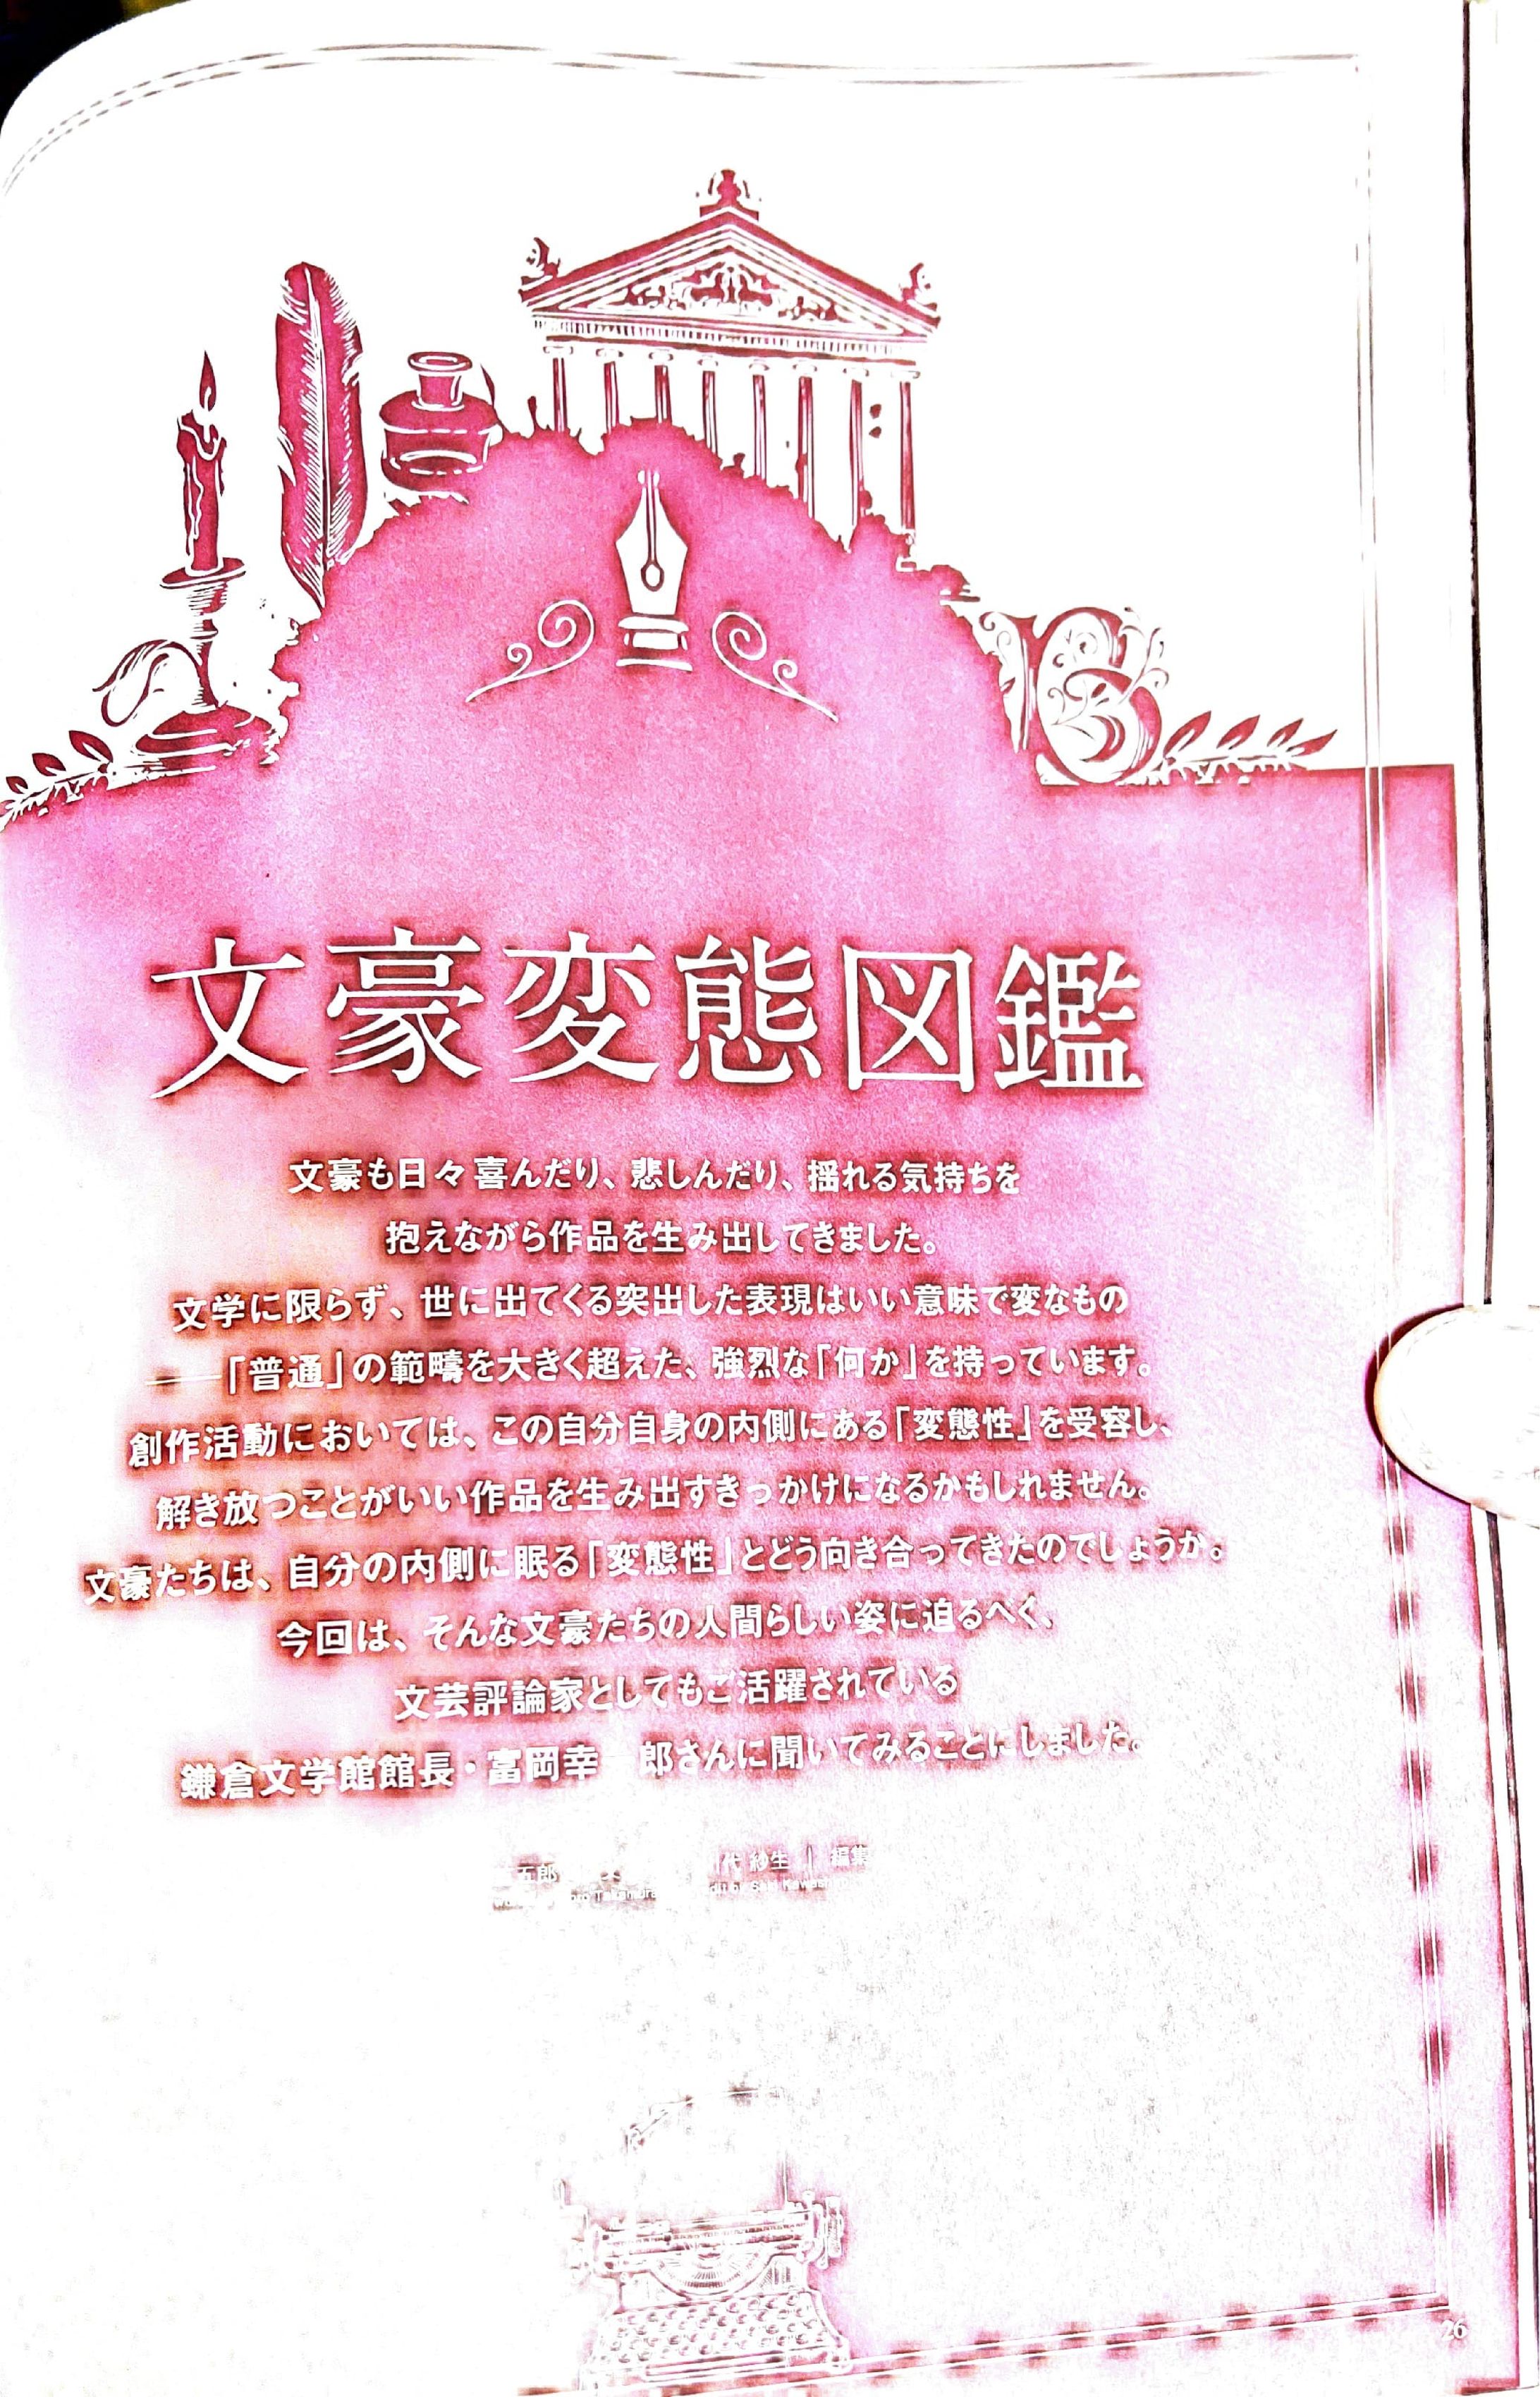 文豪変態図鑑
文豪も日々喜んだり、悲しんだり、揺れる気持ちを
抱えながら作品を生み出してきました。
文学に限らず、世に出てくる突出した表現はいい意味で変なもの
――「普通」の範疇を大きく超えた、強烈な「何か」を持っています。
創作活動においては、この自分自身の内側にある「変態性」を受容し、
解き放つことがいい作品を生み出すきっかけになるかもしれません。
文豪たちは、自分の内側に眠る「変態性」とどう向き合ってきたのでしょうか。
今回は、そんな文豪たちの人間らしい姿に迫るべく、
文芸評論家としてもご活躍されている
鎌倉文学館館長・富岡幸一郎さんに聞いてみることにしました。
五郎 代 紗生 | 編集
26